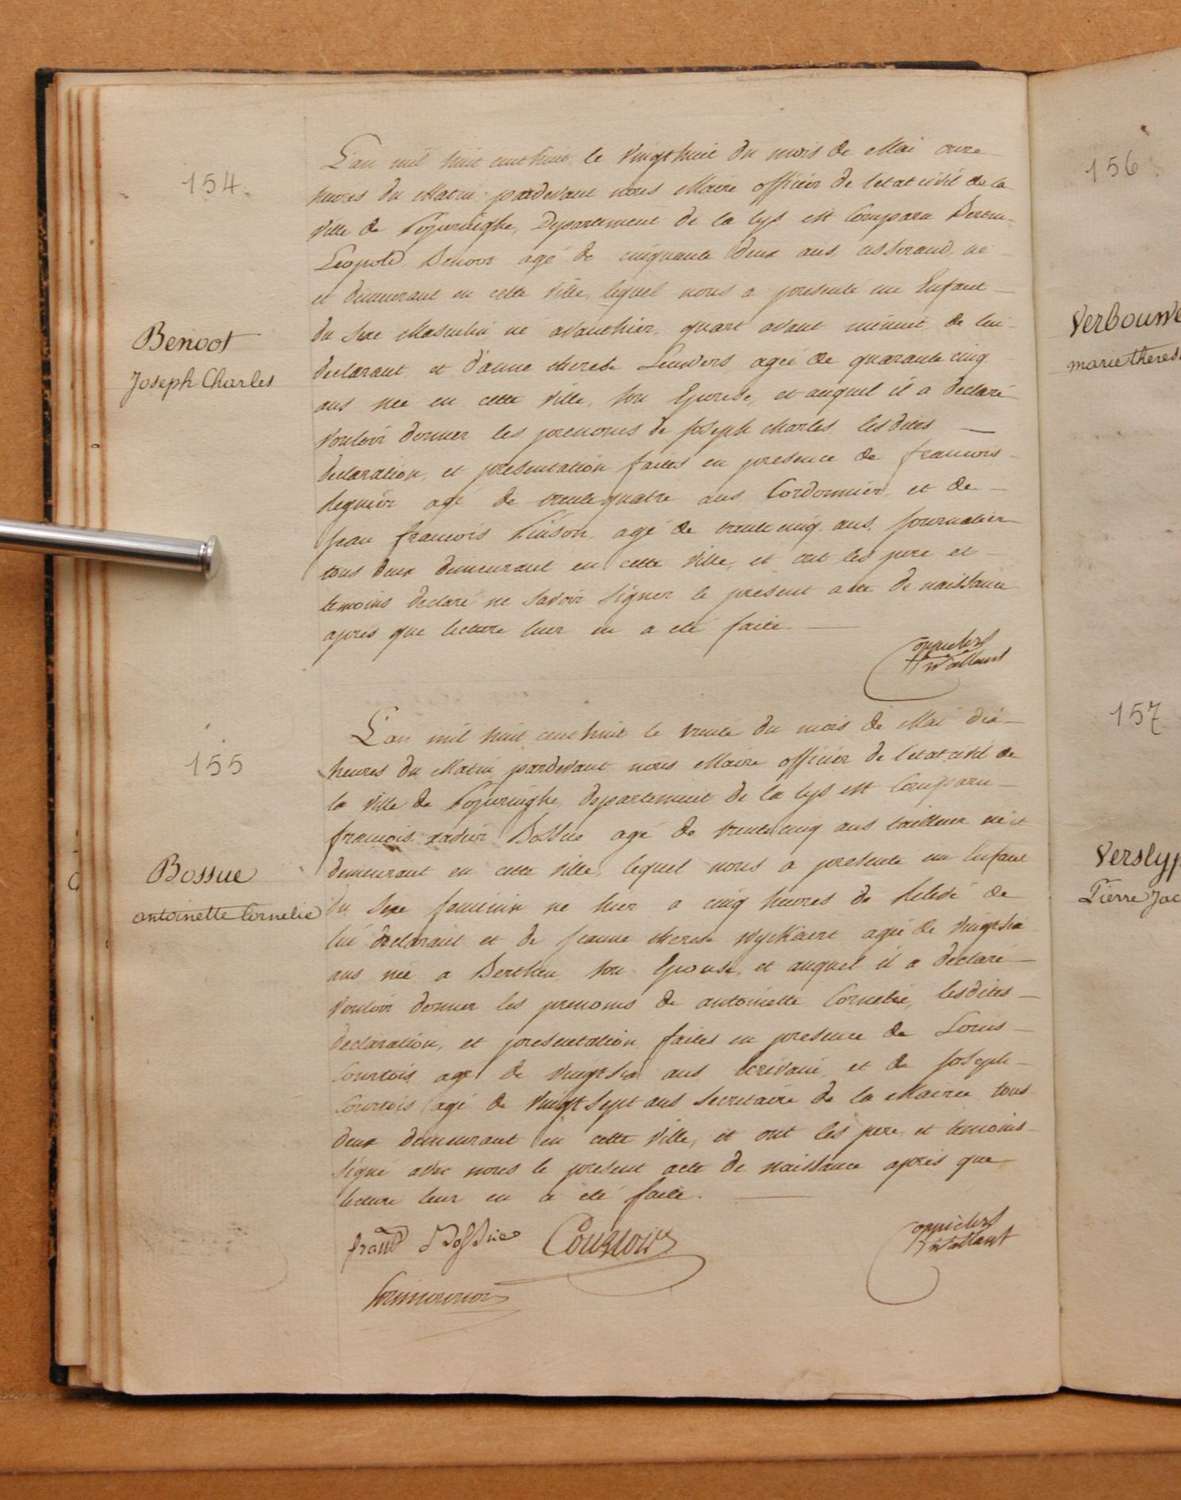 154.
Benoot
Joseph Charles
L'an mil huit cent huit le vingt huit du mois de Mai onze
heures du Matin, pardevant nous Maire officier de l'etat civil de la
ville de Poperinghe, Departement de la lys est Comparu
Leopold Benoot agé de cinquante deux ans, né
et demeurant en cette ville, lequel nous a presenté un Enfant
du sexe Masculin né avanthier, quart avant minuit de lui
declarant et d'anne therese Leuders agée de quarante cinq
ans née en cette ville, son Epouse, et auquel il a declaré
vouloir donner les prenoms de Joseph charles lesdites
declaration, et presentation faites en presence de francois
agé de trentequatre ans Cordonnier, et de
jean francois agé de trentecinq ans, journalier
tous deux demeurant en cette ville, et ont les pere et
temoins declaré ne savoir signer le present acte de naissance
après que lecture leur en a eté faite.
155
Bossue
antoinette Cornelie
L'an mil huit cent huit le trente du mois de Mai dix
heures du Matin pardevant nous Maire officier de l'etat civil de
la ville de Poperinghe, departement de la lys est Comparu
francois xavier Bossue agé de trentecinq ans tailleur né et
demeurant en cette ville, lequel nous a presenté un Enfant
du sexe feminin né hier a cinq heures de relevé de
lui declarant et de jeanne therese Wyckaert agée de vingtsix
ans née a Berthen son Epouse, et auquel il a declaré
vouloir donner les prenoms de antoinette Cornelie, lesdites
declaration, et presentation faites en presence de Louis
Courtois agé de vingtsix ans ecrivain, et de joseph
Courtois agé de vingt sept ans secretaire de la Mairie tous
deux demeurant en cette ville, et ont les pere et temoins
signé avec nous le present acte de naissance après que
lecture leur en a eté faite.
Bossue Courtois
156
marie therese
157
Pierre Jac